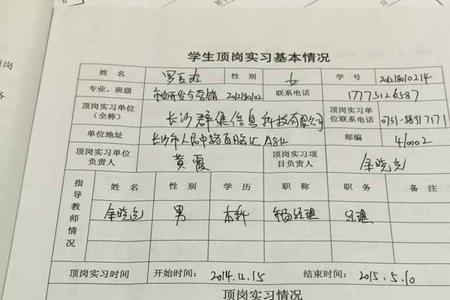 学生顶岗实习基本情况
姓 名 性 别 女 学 号
专业、班级 联系电话 17775126587
顶岗实习单位（全称） 长沙群集信息科技有限公司 顶岗实习单位联系电话 0731-88917171
单位地址 长沙市人民中路 A812 邮编 410002
顶岗实习单位负责人 黄霞 顶岗实习项目负责人 余晓
指导教师情况 姓 名 性 别 学 历 职 称 职 务 备 注
余晓 男 本科 经理
顶岗实习时间 开始时间： 2014.12.15 结束时间： 2015.5.10
顶岗实习情况